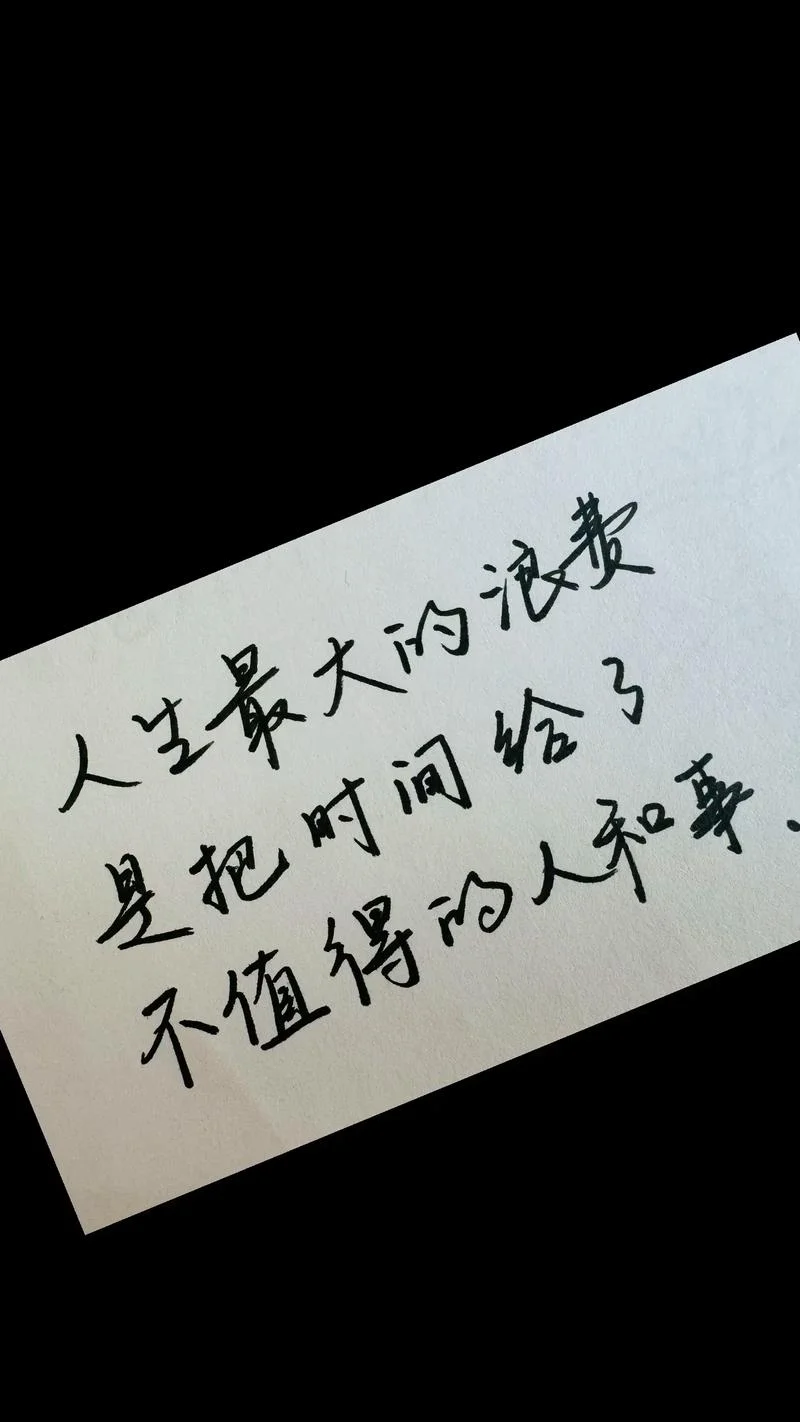 人生最大的浪费
是把时间给了
不值得的人和事、